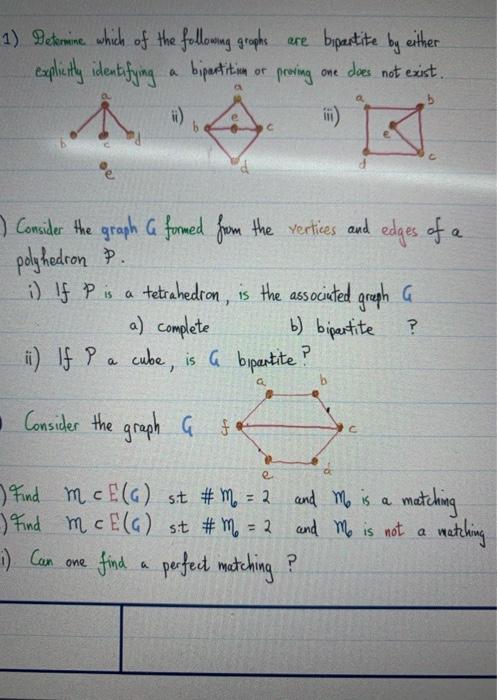 1) Determine which of the following graphs are bipartite by either
explicitly identifying a bipartition or proving one does not exist.
a
b c d
e
ii)
a
b e c
d
iii)
a b
e
d c
) Consider the graph G formed from the vertices and edges of a
polyhedron P.
i) If P is a tetrahedron, is the associated graph G
a) complete b) bipartite ?
ii) If P a cube, is G bipartite?
Consider the graph G
a b
f c
e d
) Find m ⊂ E(G) st # m = 2 and m is a matching
) Find m ⊂ E(G) st # m = 2 and m is not a matching
i) Can one find a perfect matching ?